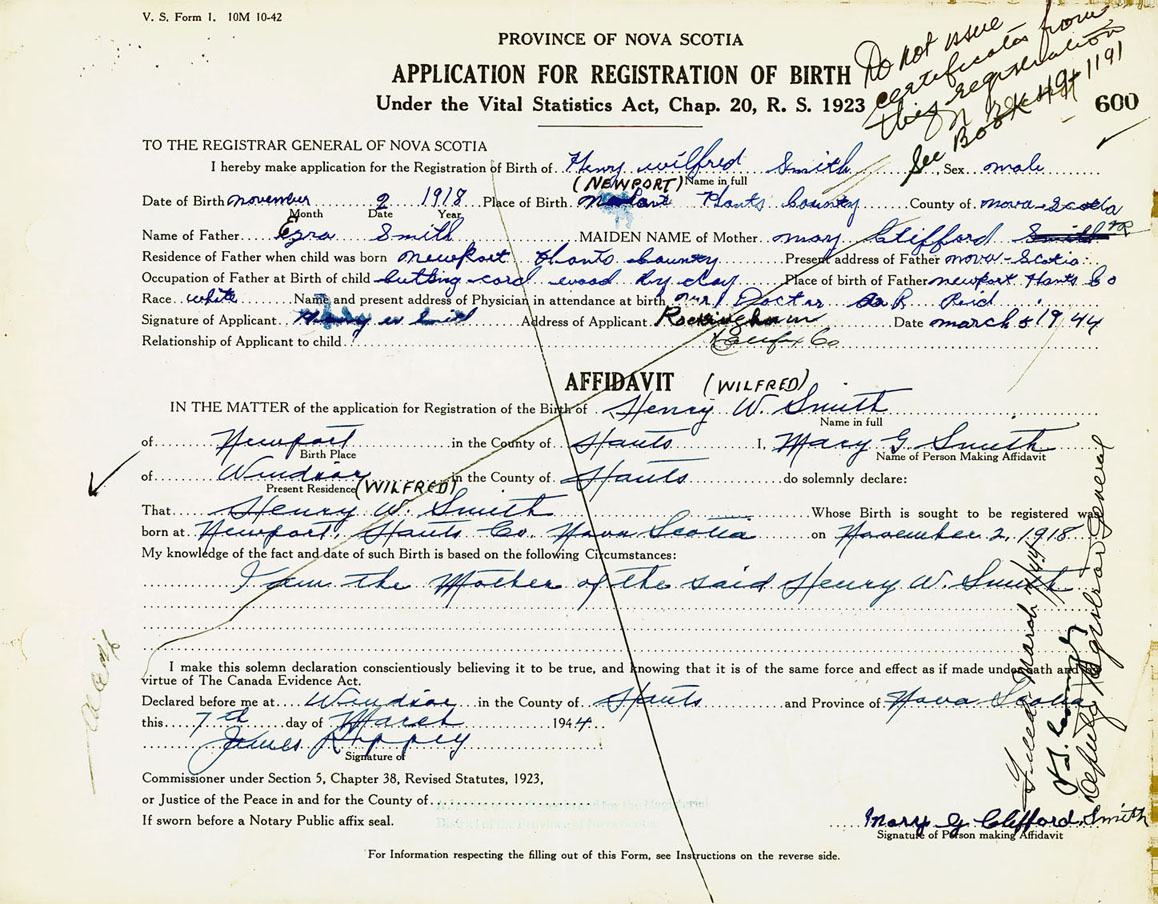 V. S. Form 1. 10M 10-42
PROVINCE OF NOVA SCOTIA
APPLICATION FOR REGISTRATION OF BIRTH
Under the Vital Statistics Act, Chap. 20, R. S. 1923
Do not issue
certificates from
this registration
See Book 49 1191
600
TO THE REGISTRAR GENERAL OF NOVA SCOTIA
I hereby make application for the Registration of Birth of Henry Wilfred Smith Sex male
(NEWPORT) Name in full
Date of Birth november 2 1918 Place of Birth Hants County County of nova-Scotia
Month Date Year
Name of Father Ezra Smith MAIDEN NAME of Mother mary Clifford Smith
Residence of Father when child was born newport Hants County Present address of Father nova-Scotia
Occupation of Father at Birth of child cutting cord wood by day Place of birth of Father newport Hants Co
Race white Name and present address of Physician in attendance at birth Doctor Reid
Signature of Applicant Henry W Smith Address of Applicant Rockingham Date march 5 1944
Relationship of Applicant to child Halifax Co
AFFIDAVIT (WILFRED)
IN THE MATTER of the application for Registration of the Birth of Henry W. Smith
Name in full
of Newport in the County of Hants I, Mary G. Smith
Birth Place Name of Person Making Affidavit
of Windsor in the County of Hants do solemnly declare:
Present Residence (WILFRED)
That Henry W. Smith Whose Birth is sought to be registered was
born at Newport, Hants Co. Nova Scotia on November 2, 1918
My knowledge of the fact and date of such Birth is based on the following Circumstances:
I am the Mother of the said Henry W. Smith
I make this solemn declaration conscientiously believing it to be true, and knowing that it is of the same force and effect as if made under oath and by
virtue of The Canada Evidence Act.
Declared before me at Windsor in the County of Hants and Province of Nova Scotia
this 7th day of March 1944
James
Signature of
Commissioner under Section 5, Chapter 38, Revised Statutes, 1923,
or Justice of the Peace in and for the County of
If sworn before a Notary Public affix seal.
Mary G Clifford Smith
Signature of Person making Affidavit
For Information respecting the filling out of this Form, see Instructions on the reverse side.
March
Deputy Registrar General